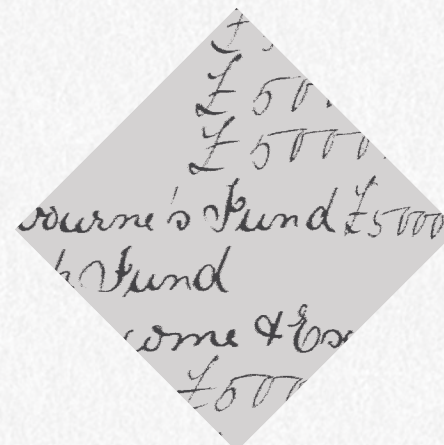 £ 5
£ 50
£ 5000
ourne's Fund £5000
Fund
come & Ex
£500